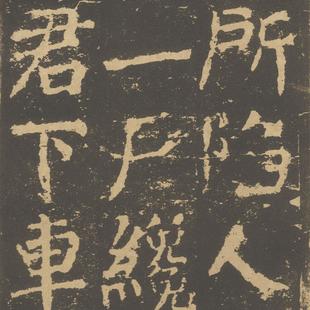 所陷人
一户纔
君下車